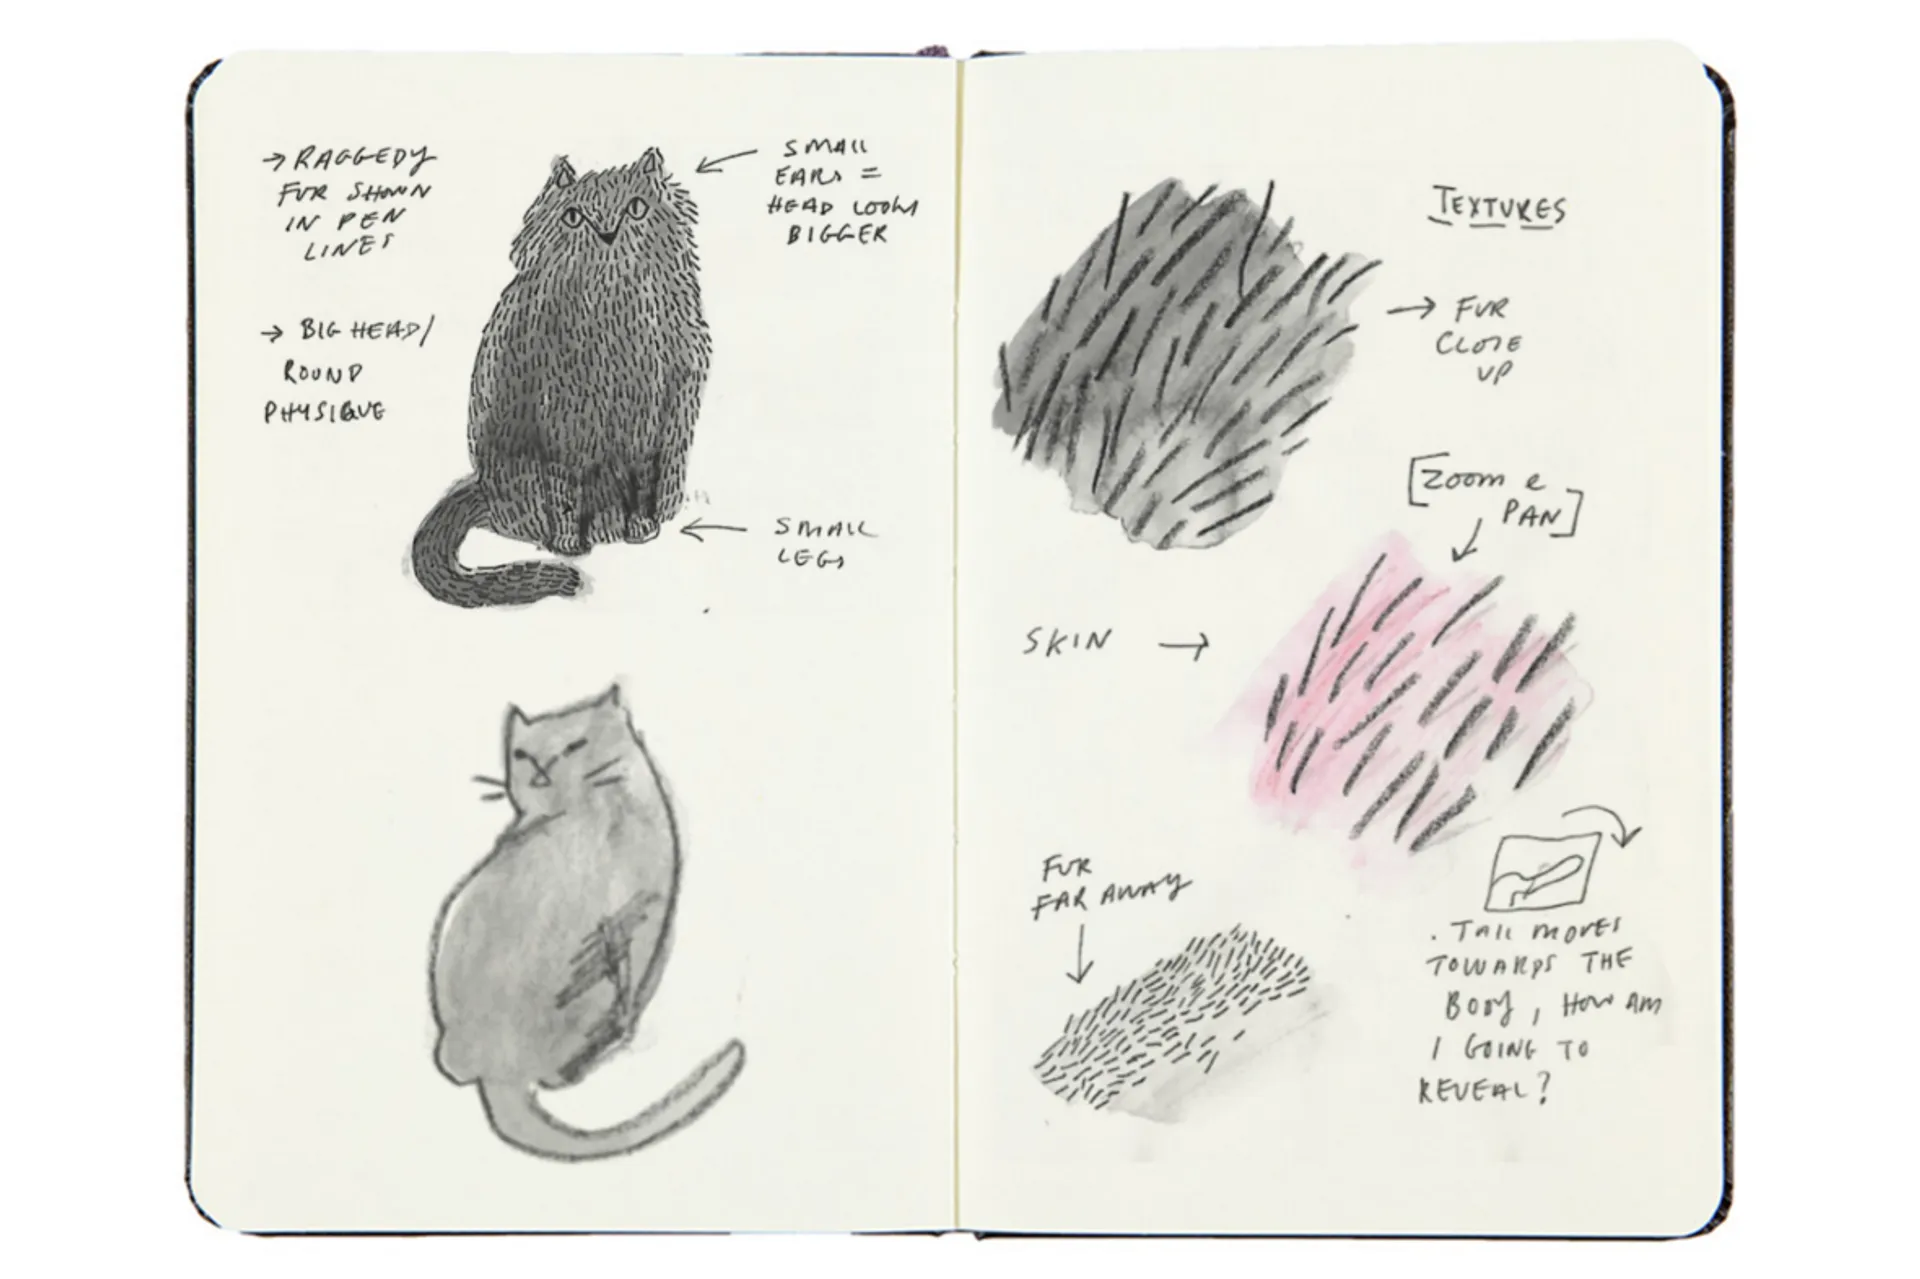 → RAGGEDY
FUR SHOWN
IN PEN
LINES
→ BIG HEAD/
ROUND
PHYSIQUE
SMALL
EARS =
HEAD LOOKS
BIGGER
SMALL
LEGS
TEXTURES
→ FUR
CLOSE
UP
[ZOOM &
PAN]
SKIN →
FUR
FAR AWAY
. TAIL MOVES
TOWARDS THE
BODY, HOW AM
I GOING TO
REVEAL?